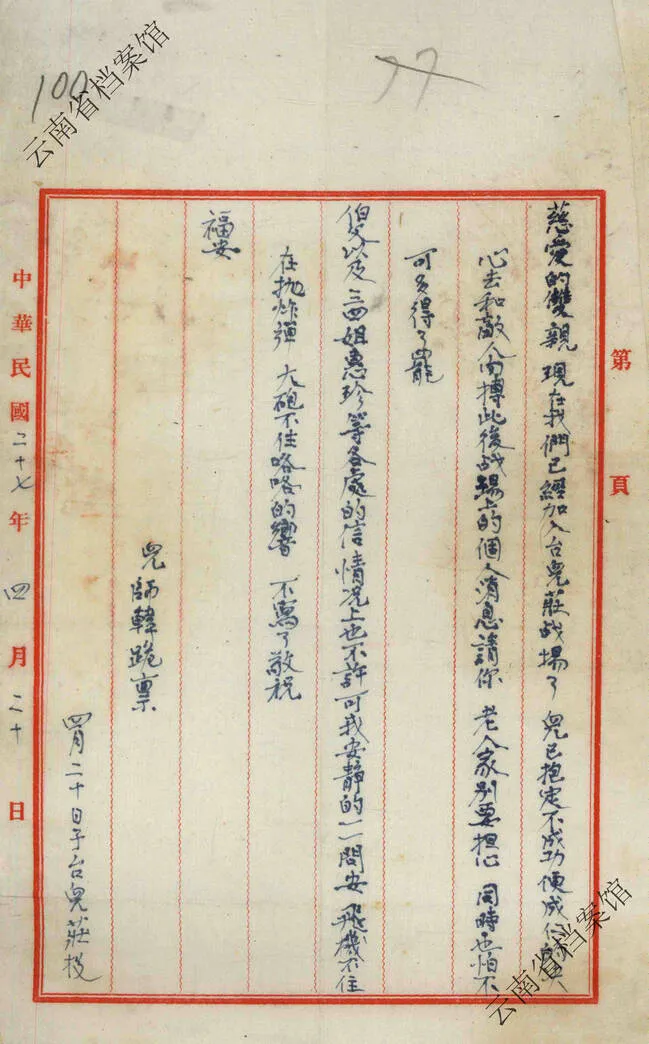 100
77
云南省档案馆
第 頁
慈愛的雙親 現在我們已經加入台兒莊战場了 兒已抱定不成功便成仁的决
心去和敵人肉搏此後战場上的個人消息請你 老人家別要担心 同時也怕不
可多得了罷
伯父以及三四姐惠珍等各處的信情况上也不許可我安静的一一問安 飛機不住
在抛炸彈 大砲不住咯咯的響 不寫了敬祝
福安
兒師韓跪禀
四月二十日于台兒莊投
中華民國二十七年四月二十日
云南省档案馆